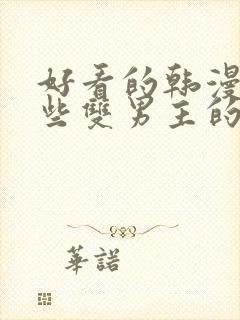 好看的韩漫
些雙男主的
華諾